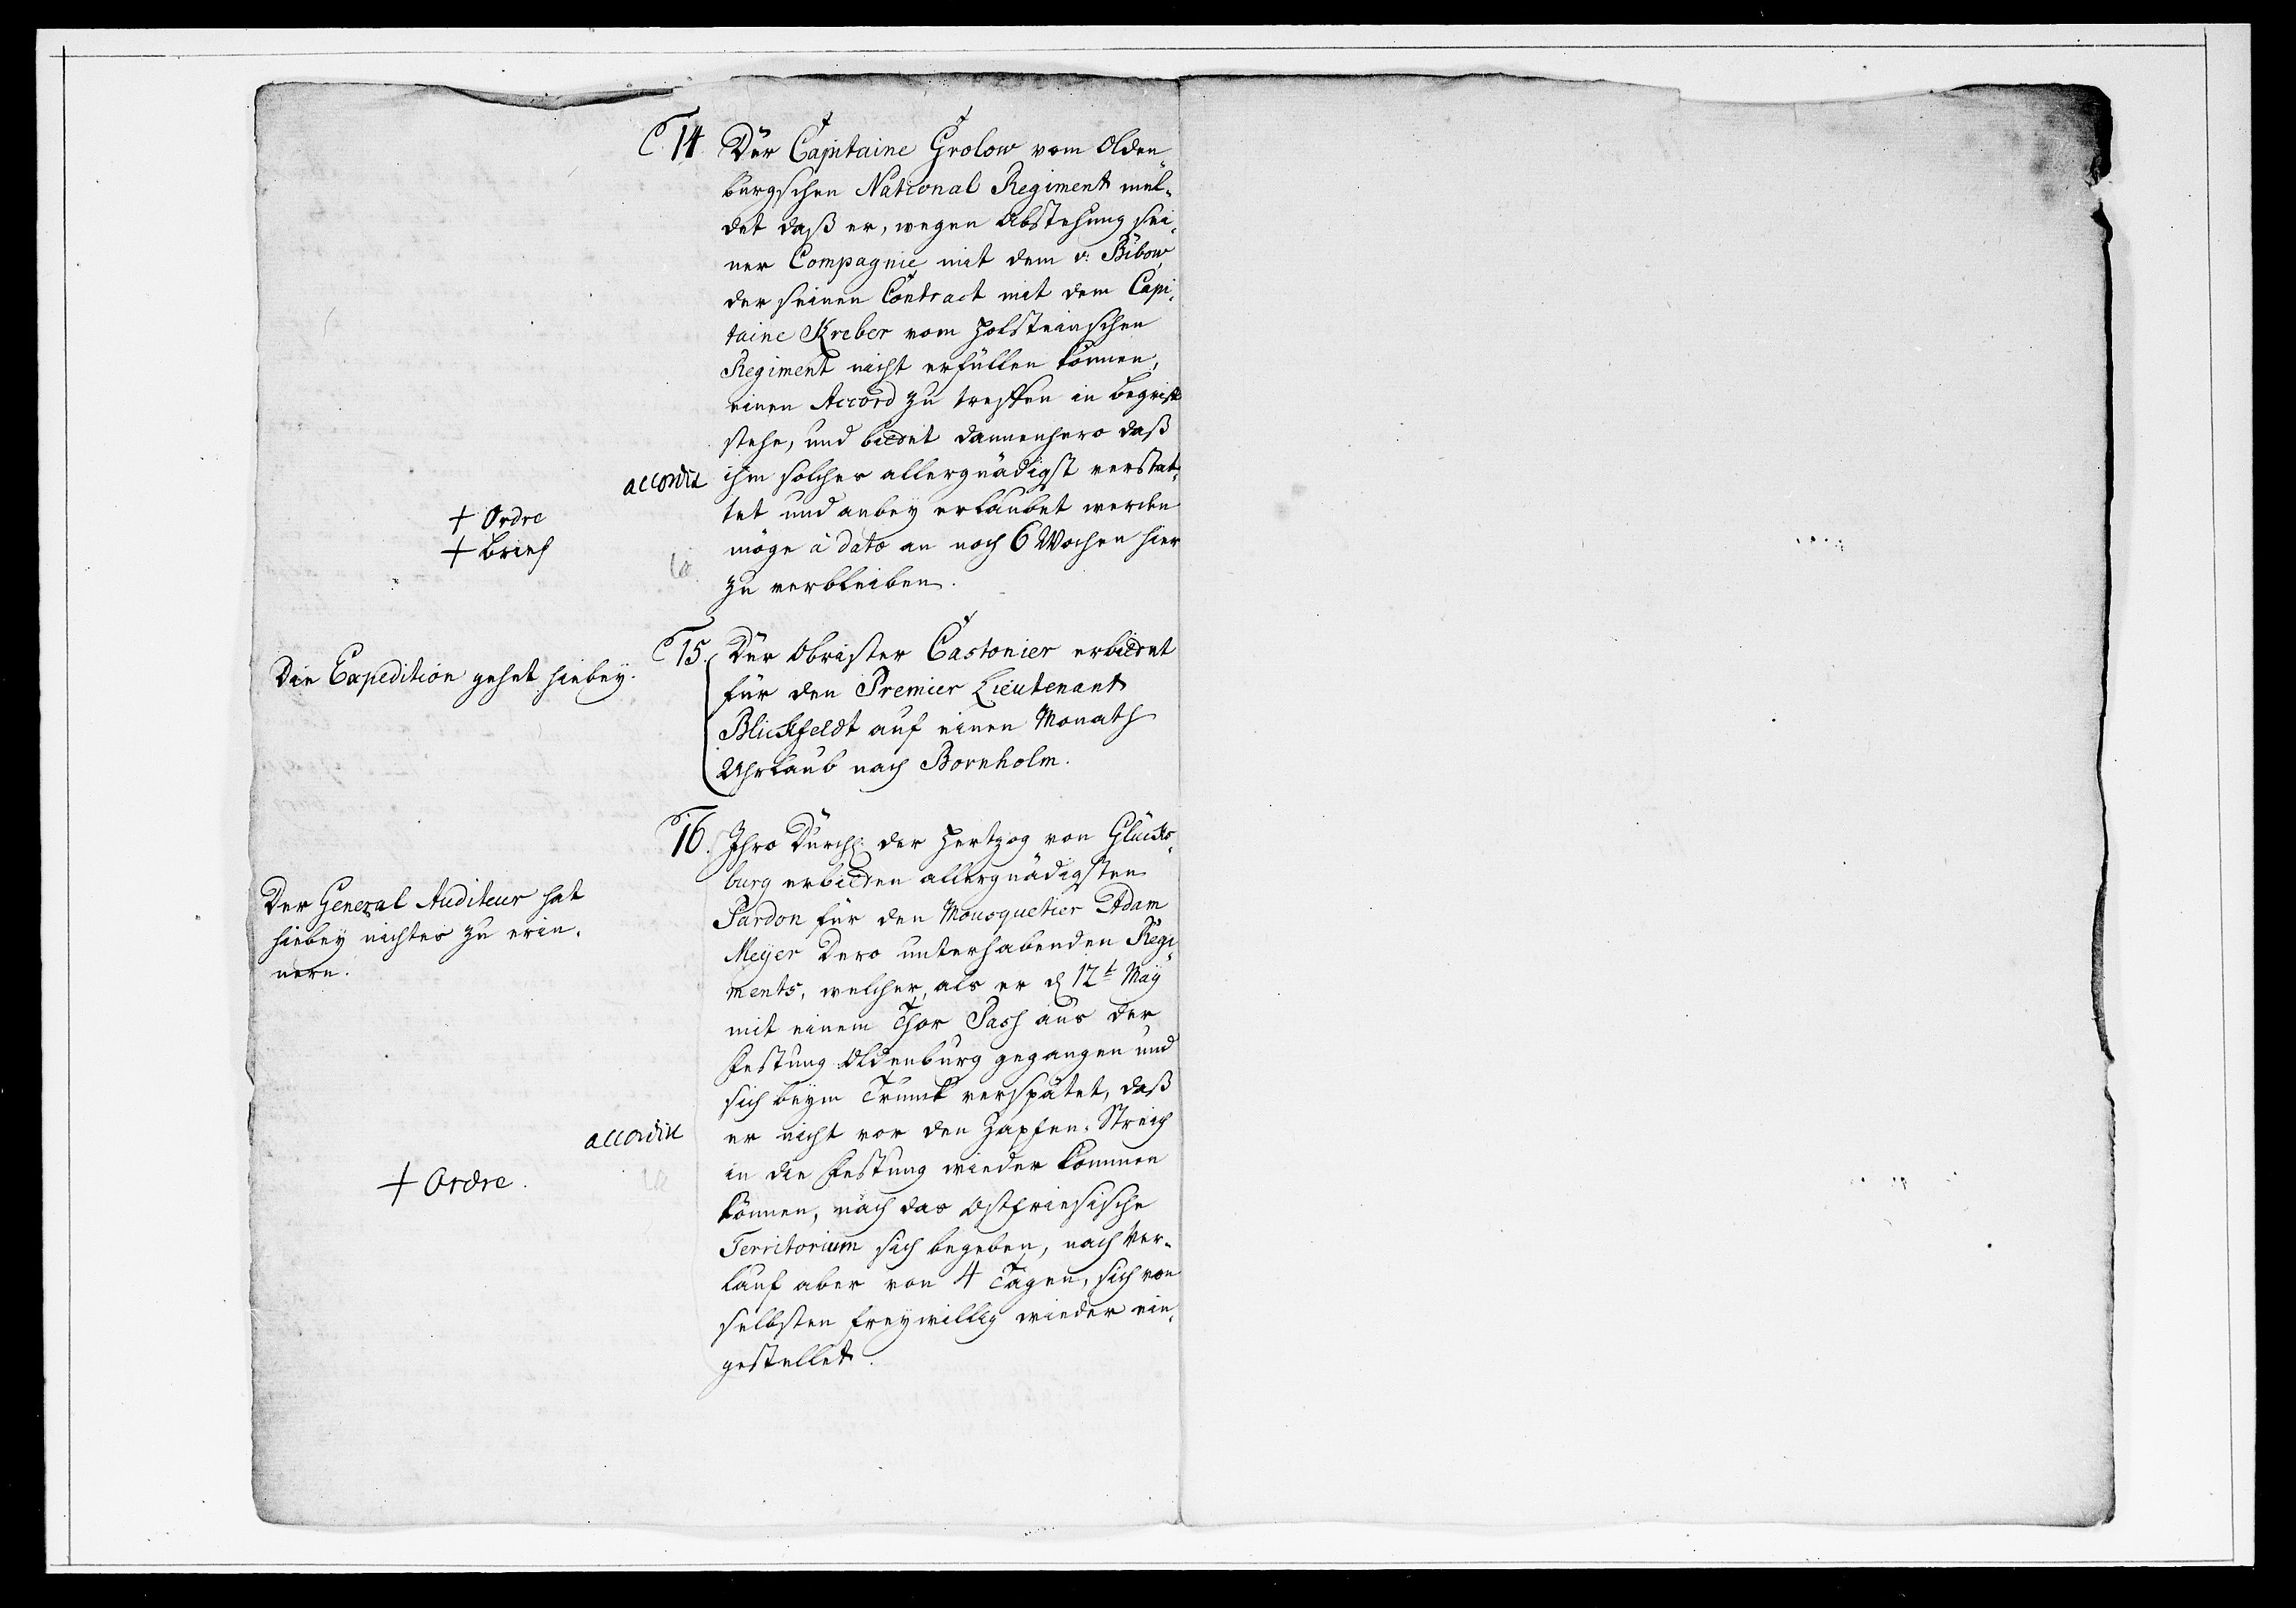 14. Der Capitaine Grolow vom Olden
burgschen National Regiment mel-
det daß er, wegen Abstehung sei-
ner Compagnie mit dem v: Bibow
der seinen Contract mit dem Capi-
taine Kreber vom Holsteinschen
Regiment nicht erfüllen können,
einen Accord zu treffen in begriff
stehe, und bittet dannenhero daß
accordirt
ihm solches allergnädigst verstat-
tet und anbey erlaubet werden
+ Ordre
+ Brief
möge à dato an noch 6 Wochen hier
zu verbleiben.
Die Expedition gehet hiebey.
15. Der Obrister Castonier erbittet
für den Premier Lieutenant
Blickfeldt auf einen Monath
Uhrlaub nach Bornholm.
16. Ihro Durchl: der Hertzog von Glücks-
burg erbitten allergnädigsten
Der General Auditeur hat
hiebey nichtes zu erin-
nern.
Pardon für den Mousquetier Adam
Meyer Dero unterhabenden Regi-
ments, welcher, als er d 12t May
mit einem Thor Pass aus der
Festung Oldenburg gegangen und
sich beym Trunk verspätet, daß
accordirt
er nicht vor den Zapfen-Streich
in die Festung wieder kommen
+ Ordre.
können, nach das Ostfriesische
Territorium sich begeben, nach Ver-
lauf aber von 4 Tagen, sich von
selbsten freywillig wieder ein-
gestellet.